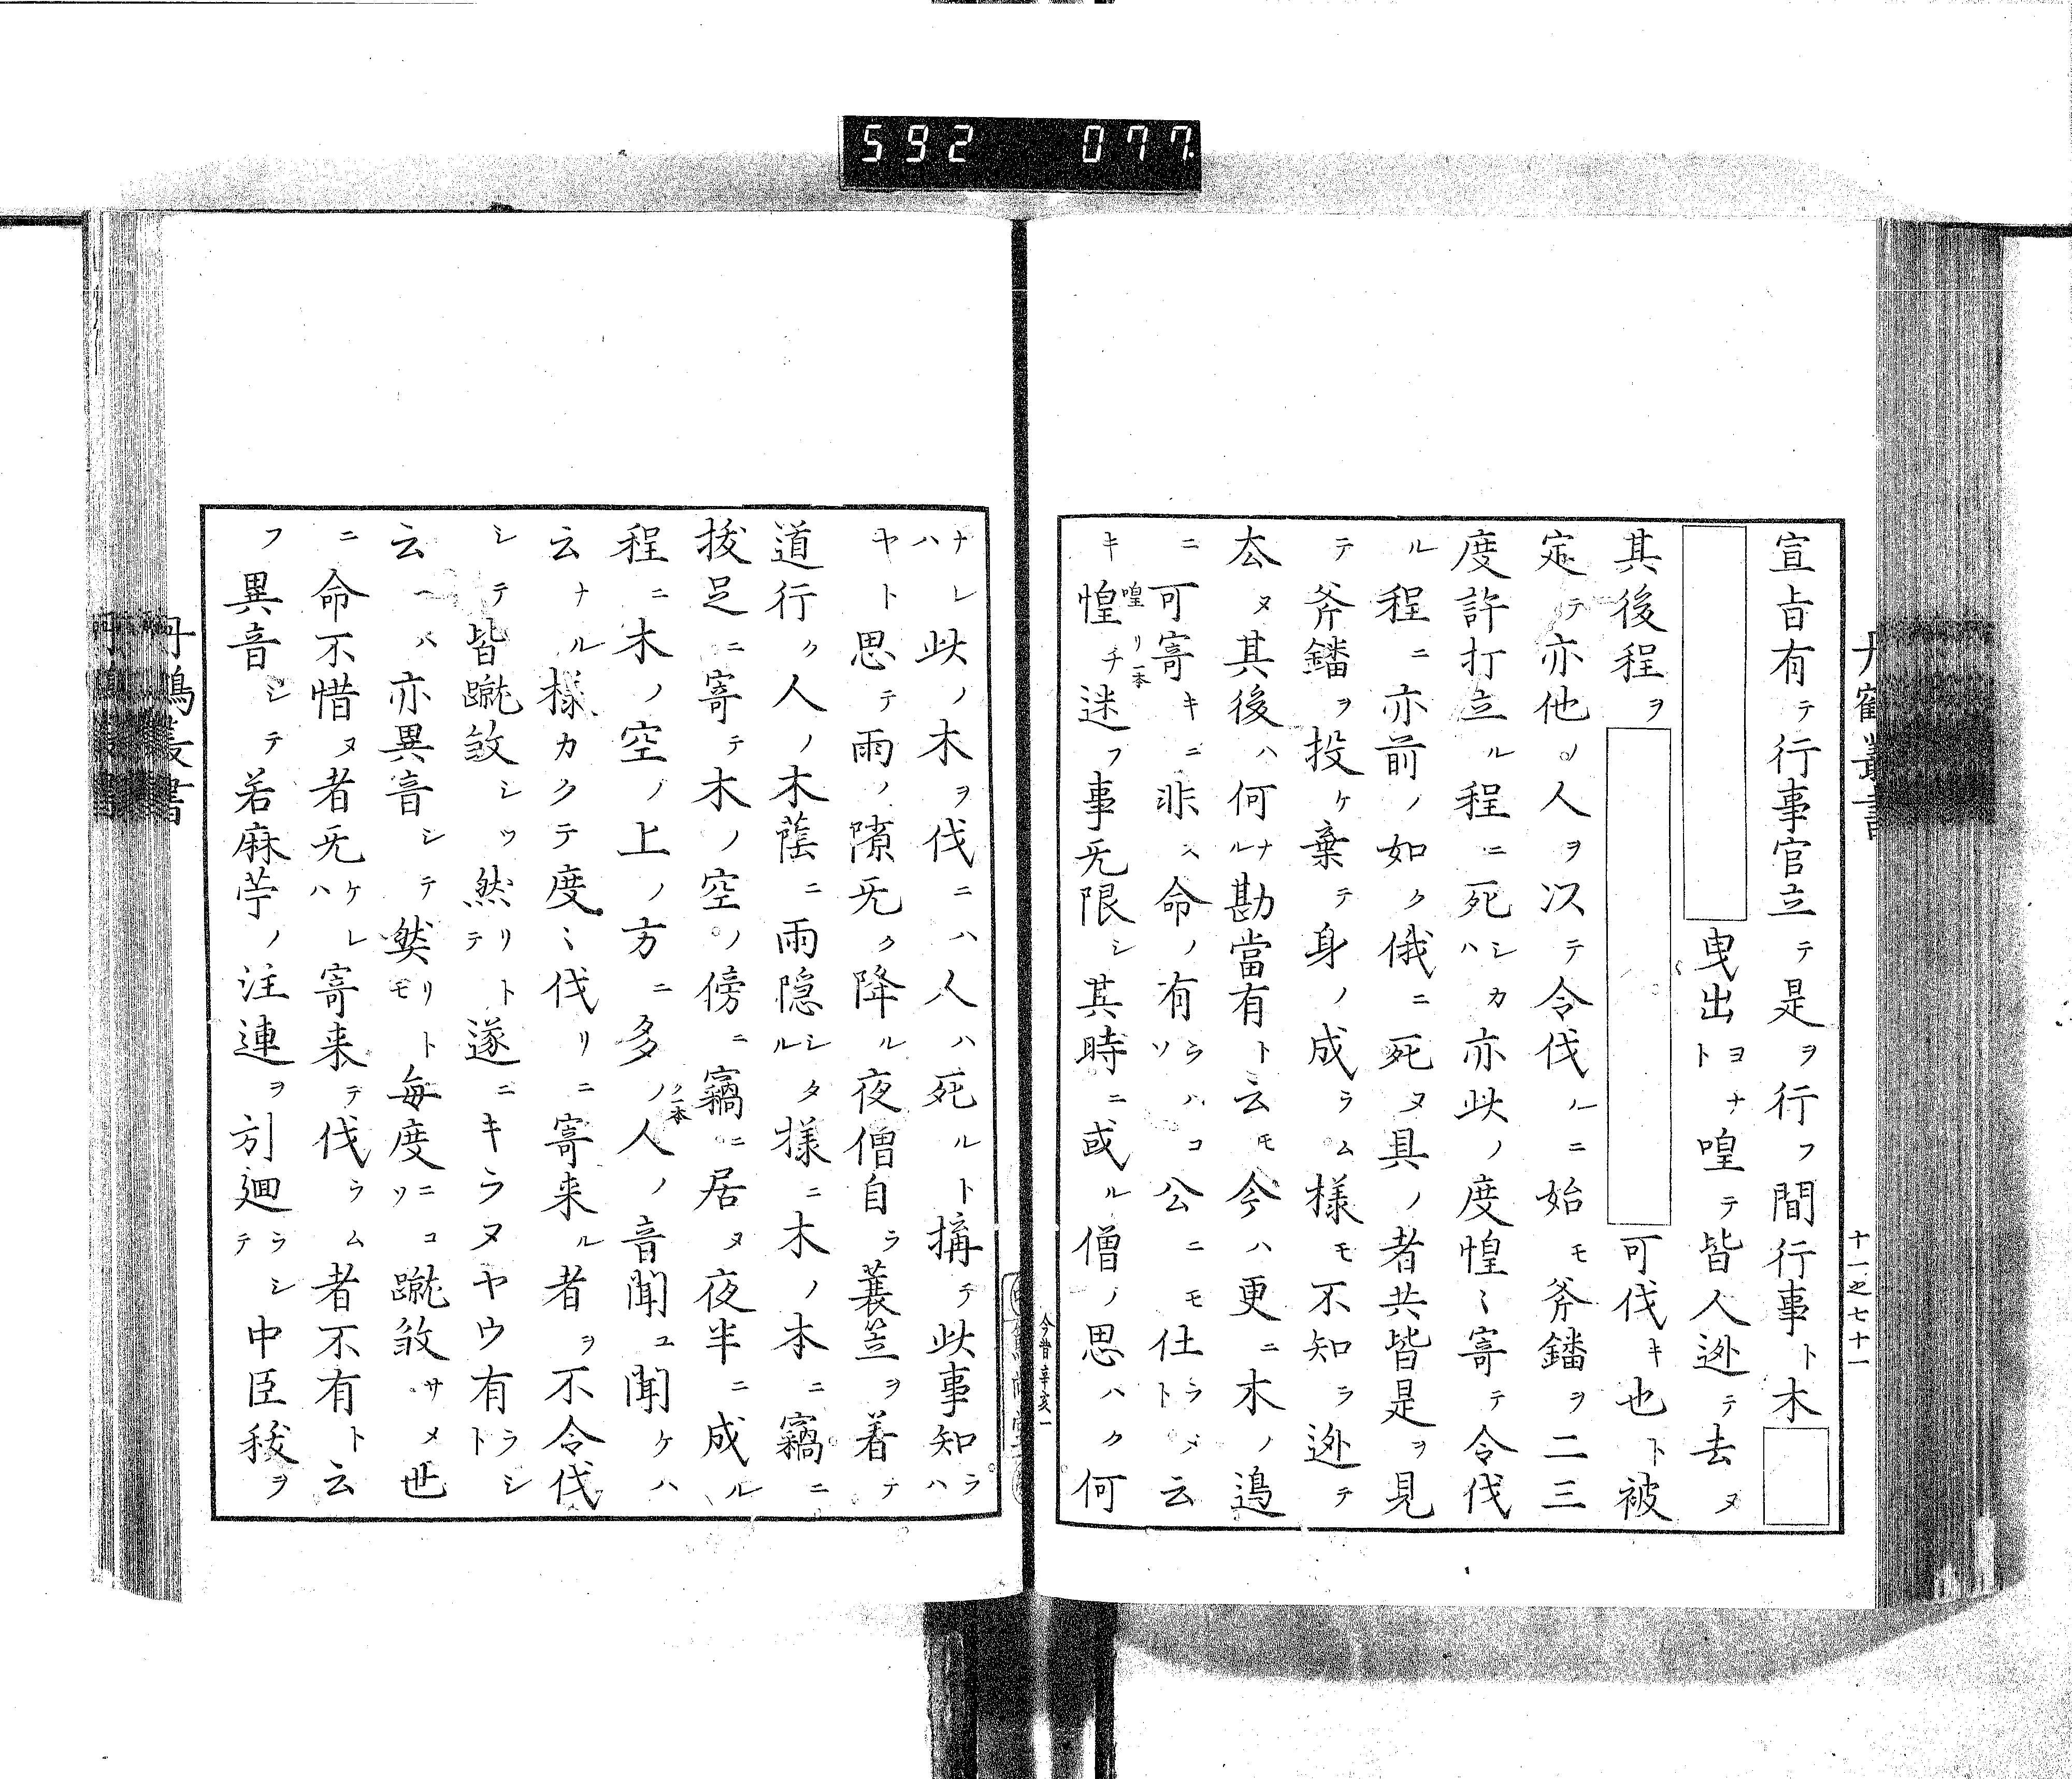 592 077
丹鶴叢書
十一之七十一
宣旨有テ行事官立テ是ヲ行フ間行事ト木
曳出ヨナト喤テ皆人迯テ去ヌ
其後程ヲ可伐キ也ト被
定テ亦他ノ人ヲ以テ令伐ルニ始モ斧鐇ヲ二三
度許打立ル程ニ死シカハ亦此ノ度惶〻寄テ令伐
ル程ニ亦前ノ如ク俄ニ死ヌ具ノ者共皆是ヲ見
テ斧鐇ヲ投ケ棄テ身ノ成ラム様モ不知ラ迯テ
厺ヌ其後ハ何ナル勘當有ト云モ今ハ更ニ木ノ邉
ニ可寄キニ非ス命ノ有ラハコソ公ニモ仕ラメト云
キ惶チ迷フ事无限シ其時ニ或ル僧ノ思ハク何
喤リ一本
今昔辛亥一
ナレハ此ノ木ヲ伐ニハ人ハ死ルト搆テ此事知ラハ
ヤト思テ雨ノ隙无ク降ル夜僧自ラ蓑笠ヲ着テ
道行ク人ノ木蔭ニ雨隠シタル様ニ木ノ本ニ竊ニ
抜足ニ寄テ木ノ空ノ傍ニ竊ニ居ヌ夜半ニ成ル
程ニ木ノ空ノ上ノ方ニ多ノ人ノ音聞ユ聞ケハ
ク一本
云ナル様カクテ度〻伐リニ寄来ル者ヲ不令伐
シテ皆蹴敓シツ然リトテ遂ニキラヌヤウ有ラシト
云ヘハ亦異音シテ然リトモ毎度ニコソ蹴敓サメ世
ニ命不惜ヌ者无ケレハ寄来テ伐ラム者不有ト云
フ異音シテ若麻苧ノ注連ヲ引廻ラシテ中臣秡ヲ
丹鶴叢書